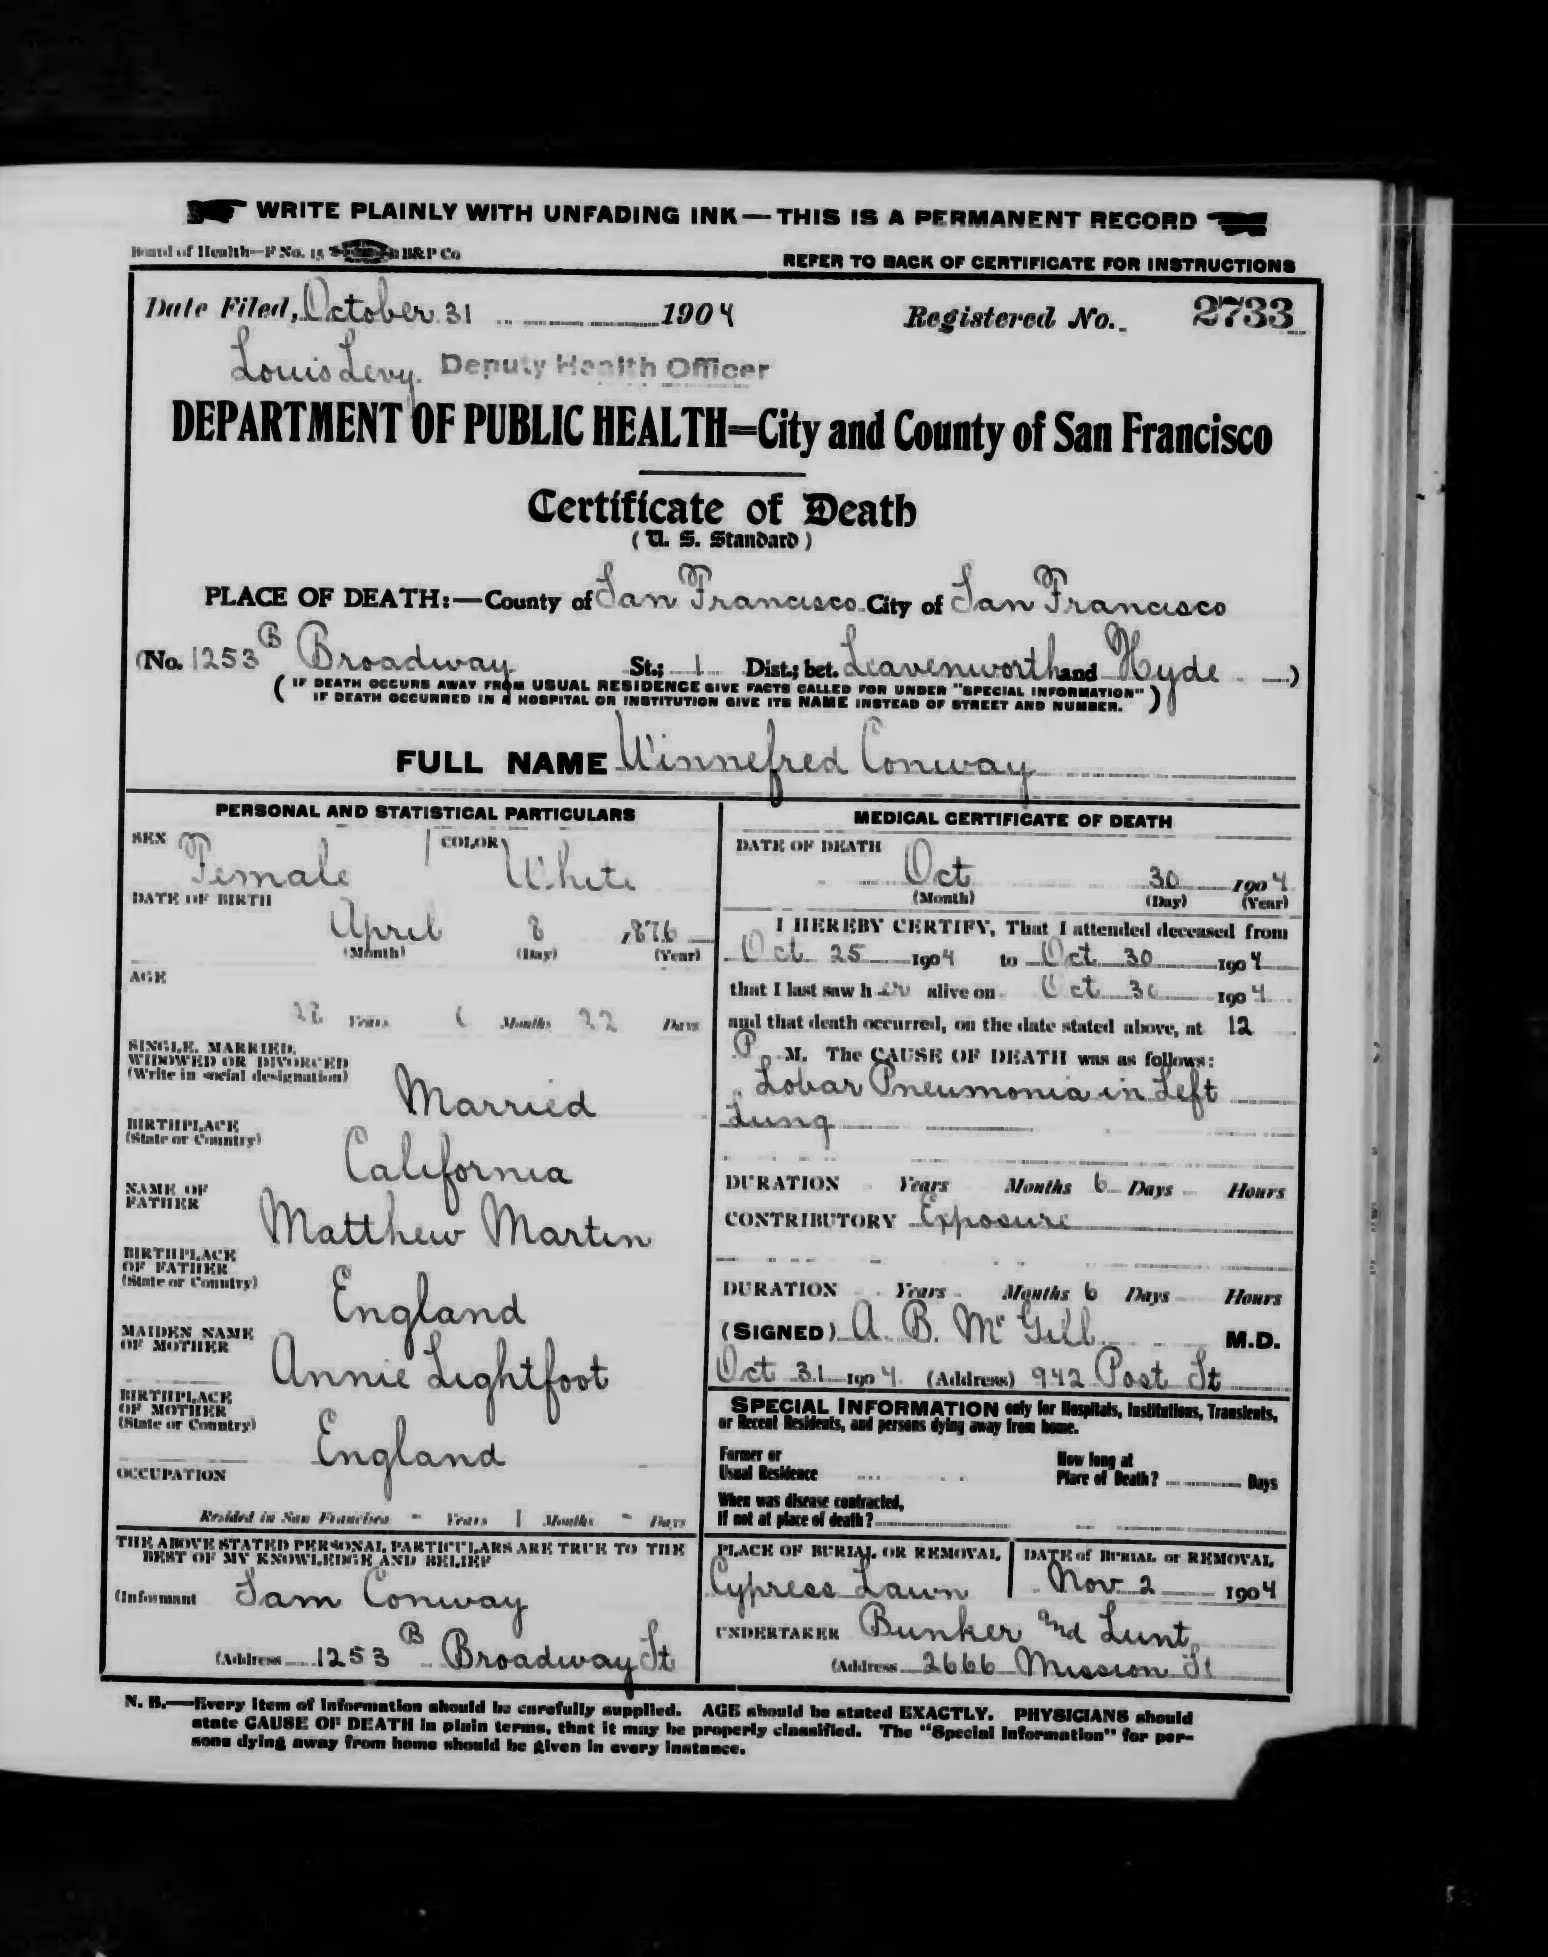 WRITE PLAINLY WITH UNFADING INK—THIS IS A PERMANENT RECORD
Board of Health—F No. 15 B&P Co
REFER TO BACK OF CERTIFICATE FOR INSTRUCTIONS
Date Filed, October 31 1904 Registered No. 2733
Louis Levy. Deputy Health Officer
DEPARTMENT OF PUBLIC HEALTH=City and County of San Francisco
Certificate of Death
(U. S. Standard)
PLACE OF DEATH:—County of San Francisco City of San Francisco
(No. 1253 B Broadway St.; 1 Dist.; bet. Leavenworth and Hyde )
( IF DEATH OCCURS AWAY FROM USUAL RESIDENCE GIVE FACTS CALLED FOR UNDER "SPECIAL INFORMATION"
IF DEATH OCCURRED IN A HOSPITAL OR INSTITUTION GIVE ITS NAME INSTEAD OF STREET AND NUMBER. )
FULL NAME Winnefred Conway
PERSONAL AND STATISTICAL PARTICULARS
SEX Female COLOR White
DATE OF BIRTH
April 8 1876
(Month) (Day) (Year)
AGE
28 Years 6 Months 22 Days
SINGLE, MARRIED,
WIDOWED OR DIVORCED
(Write in social designation)
Married
BIRTHPLACE
(State or Country)
California
NAME OF
FATHER
Matthew Martin
BIRTHPLACE
OF FATHER
(State or Country)
England
MAIDEN NAME
OF MOTHER
Annie Lightfoot
BIRTHPLACE
OF MOTHER
(State or Country)
England
OCCUPATION
Resided in San Francisco - Years 1 Months - Days
THE ABOVE STATED PERSONAL PARTICULARS ARE TRUE TO THE
BEST OF MY KNOWLEDGE AND BELIEF
(Informant Sam Conway
(Address 1253 B Broadway St
MEDICAL CERTIFICATE OF DEATH
DATE OF DEATH
Oct 30 1904
(Month) (Day) (Year)
I HEREBY CERTIFY, That I attended deceased from
Oct 25 1904 to Oct 30 1904
that I last saw her alive on Oct 30 1904
and that death occurred, on the date stated above, at 12
P M. The CAUSE OF DEATH was as follows:
Lobar Pneumonia in Left
Lung
DURATION Years Months 6 Days Hours
CONTRIBUTORY Exposure
DURATION Years Months 6 Days Hours
(SIGNED) A. B. McGill M.D.
Oct 31 1904 (Address) 942 Post St
SPECIAL INFORMATION only for Hospitals, Institutions, Transients,
or Recent Residents, and persons dying away from home.
Former or
Usual Residence
How long at
Place of Death? Days
When was disease contracted,
If not at place of death?
PLACE OF BURIAL OR REMOVAL
Cypress Lawn
DATE of BURIAL or REMOVAL
Nov 2 1904
UNDERTAKER Bunker and Lunt
(Address 2666 Mission St
N. B.—Every item of information should be carefully supplied. AGE should be stated EXACTLY. PHYSICIANS should
state CAUSE OF DEATH in plain terms, that it may be properly classified. The "Special Information" for per-
sons dying away from home should be given in every instance.